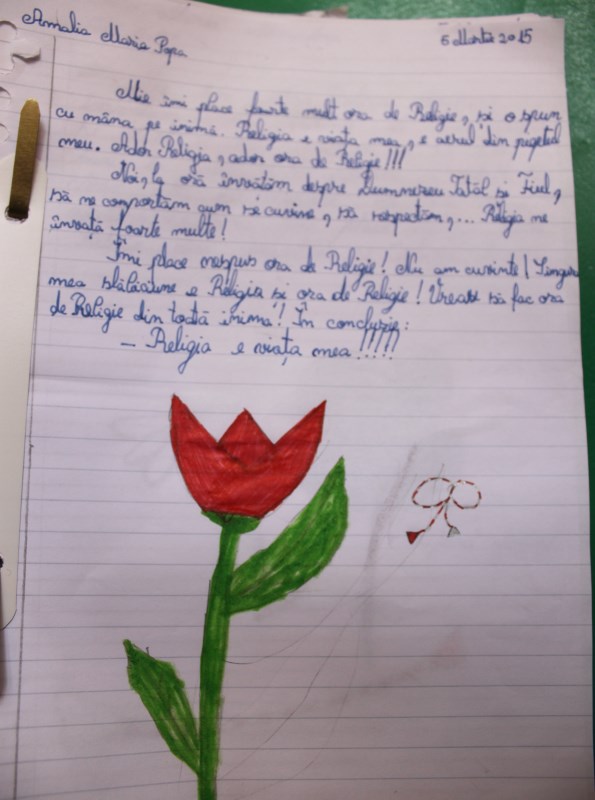 Amalia Maria Popa
5 Martie 2015
Mie îmi place foarte mult ora de Religie, și o spun
cu mâna pe inimă. Religia e viața mea, e aerul din pieptul
meu. Ador Religia, ador ora de Religie!!!
Noi, la oră învățăm despre Dumnezeu Tatăl și Fiul,
să ne comportăm cum se cuvine, să respectăm, ... Religia ne
învață foarte multe!
Îmi place nespus ora de Religie! Nu am cuvinte! Singura
mea slăbiciune e Religia și ora de Religie! Vreau să fac ora
de Religie din toată inima! În concluzie:
– Religia e viața mea!!!!!